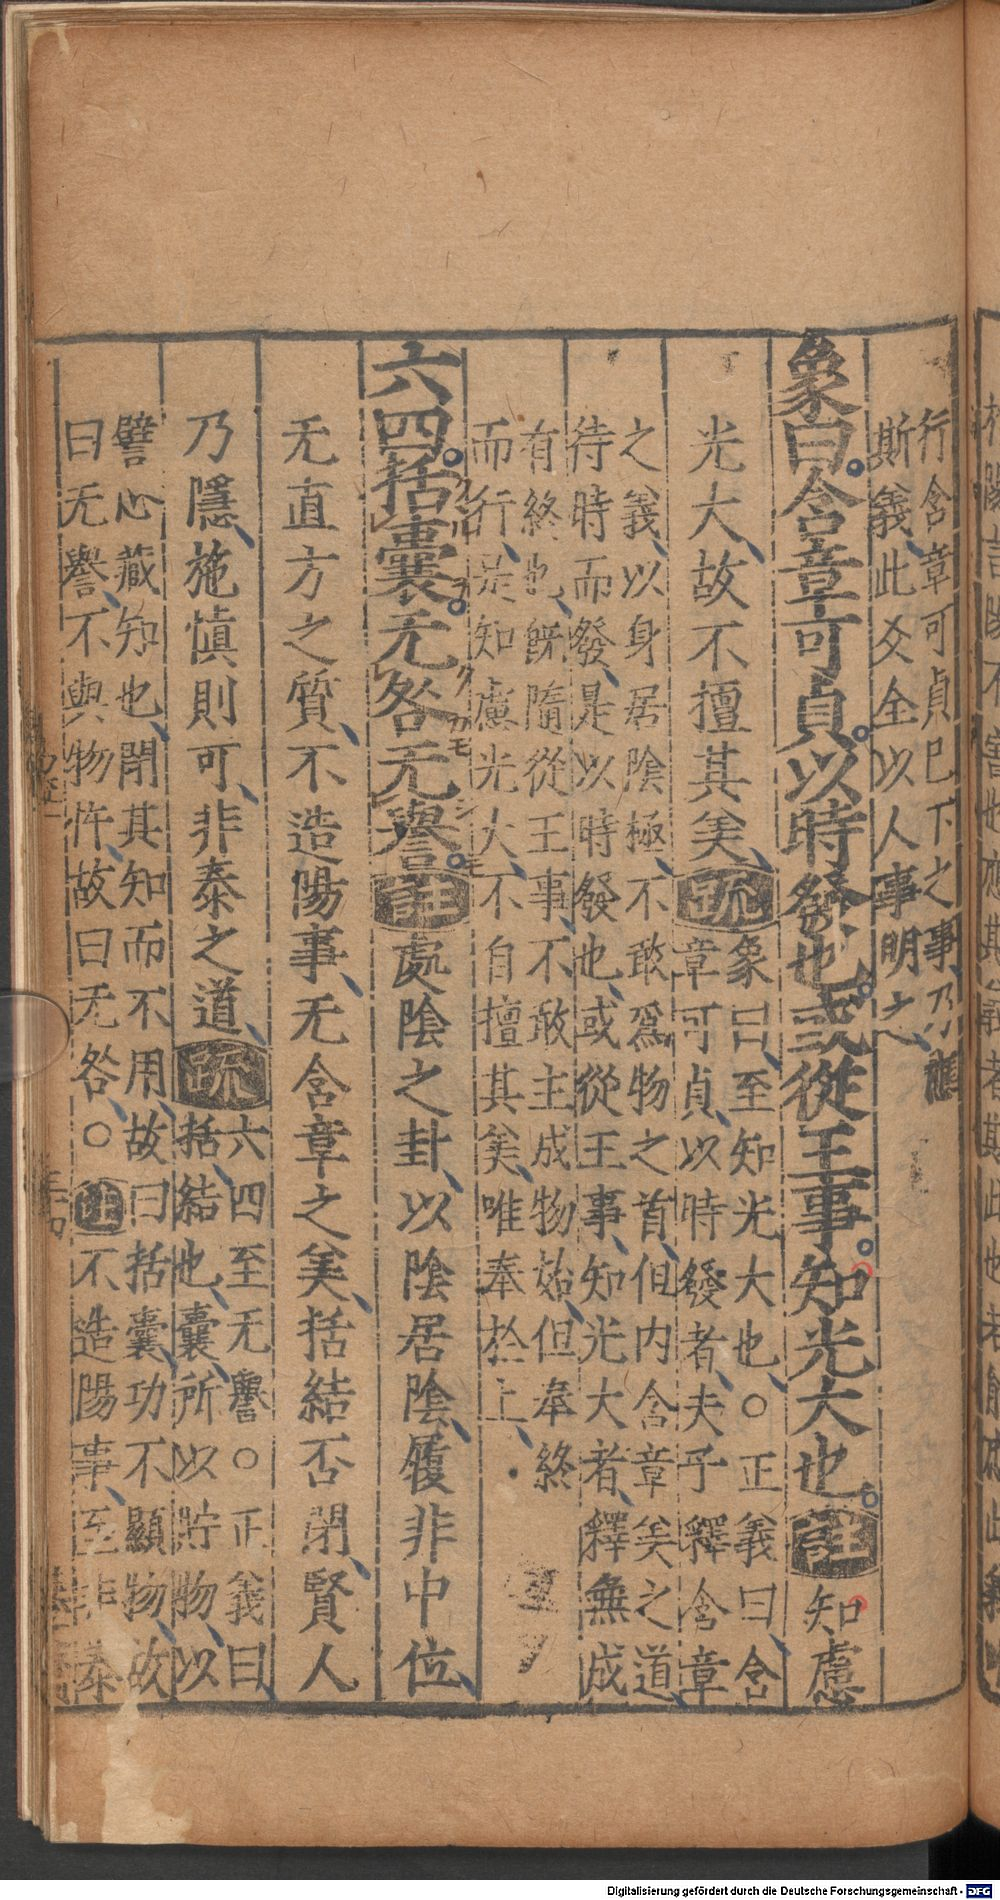 行含章可貞已下之事乃應
斯義此爻全以人事明之
象曰含章可貞以時發也或從王事知光大也註知慮
光大故不擅其美疏象曰至知光大也○正義曰含
章可貞以時發者夫子釋含章
之義以身居陰極不敢爲物之首但内含章美之道
待時而發是以時發也或從王事知光大者釋無成
有終也旣隨從王事不敢主成物始但奉終
而行是知慮光大不自擅其美唯奉於上
六四括囊无咎无譽註處陰之卦以陰居陰履非中位
无直方之質不造陽事无含章之美括結否閉賢人
乃隱施愼則可非泰之道疏六四至无譽○正義曰
括結也囊所以貯物以
譬心藏知也閉其知而不用故曰括囊功不顯物故
曰无譽不與物忤故曰无咎○註不造陽事至非泰
Digitalisierung gefördert durch die Deutsche Forschungsgemeinschaft - DFG